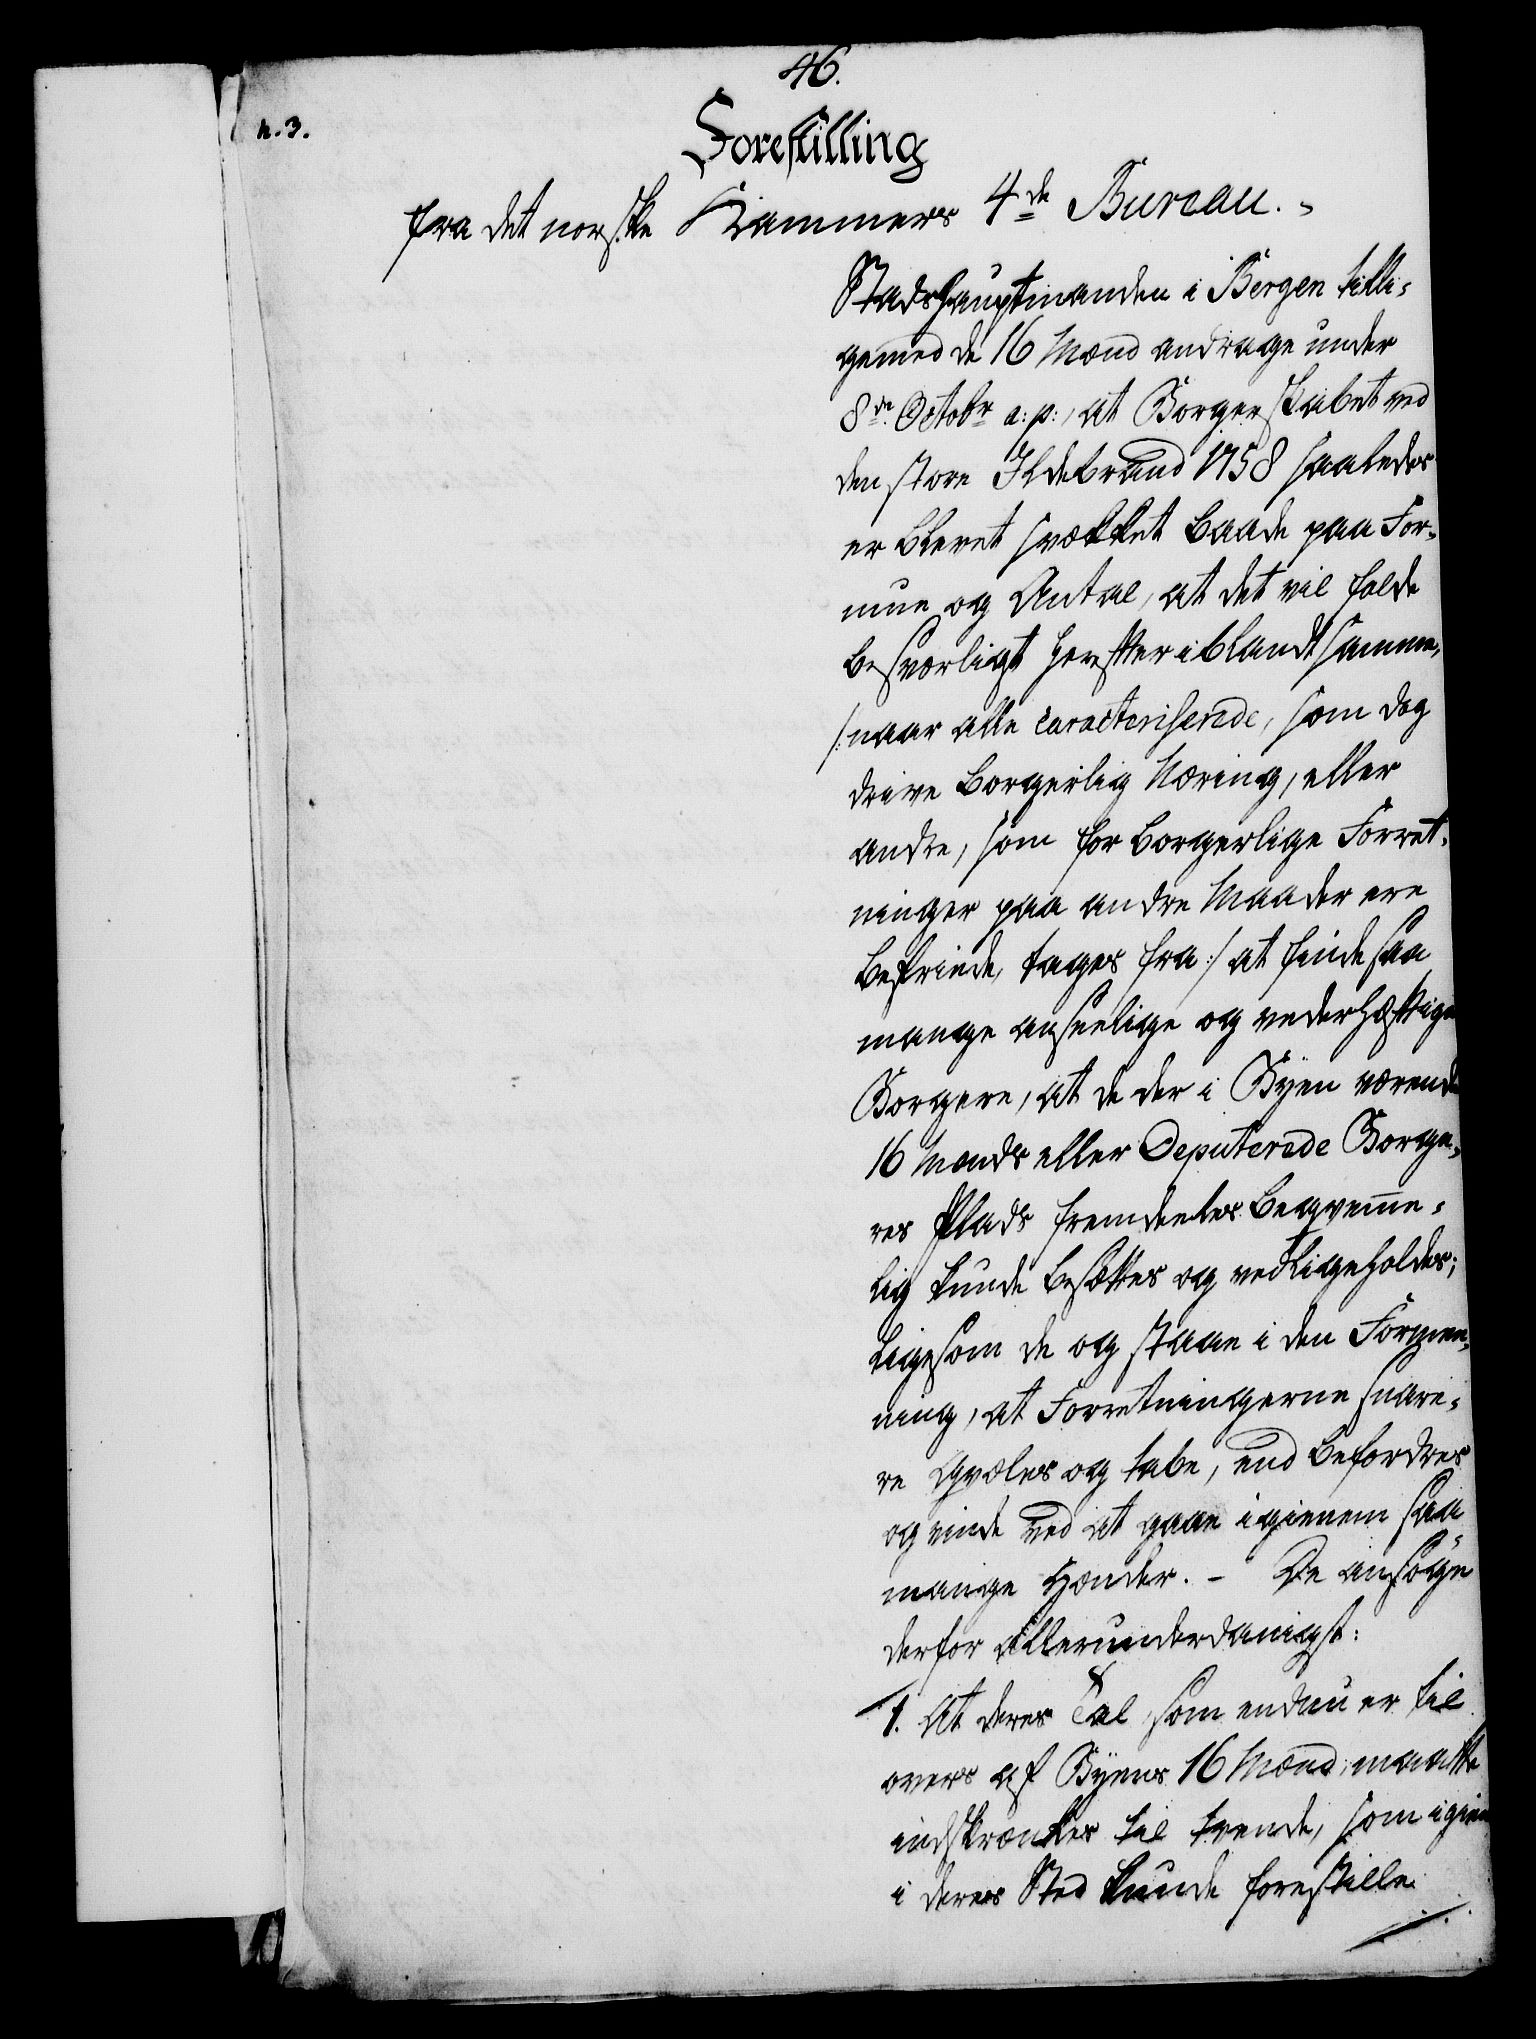 46.
n. 3.
Forestilling
fra det norske Kammers 4de Bureau.
Stadshauptmanden i Bergen tilli-
gemed de 16 Mænd andrage under
8de Octobr a: p:, at Borgerskabet ved
den store Ildebrand 1758 saaledes
er blevet svækket baade paa For-
mue og Antal, at det vil falde
besværligt herefter iblandt samme,
/: naar alle caracteriserede, som dog
drive borgerlig Næring, eller
andre, som for borgerlige Forret-
ninger paa andre Maader ere
befriede, tages fra :/ at finde saa
mange anseelige og vederhæftige
Borgere, at de der i Byen værende
16 Mænds eller Deputerede Borge-
res Plads fremdeeles beqveme-
lig kunde besættes og vedligeholdes;
ligesom de og staae i den Formee-
ning, at Forretningerne snare-
re qvæles og tabe, end befordres
og vinde ved at gaae igienem saa
mange Hænder. - De ansøge
derfor allerunderdanigst:
1. At deres Tal, som endnu er til
overs af Byens 16 Mænd, maatte
indskrænkes til tvende, som igien
i deres Sted kunde forestille